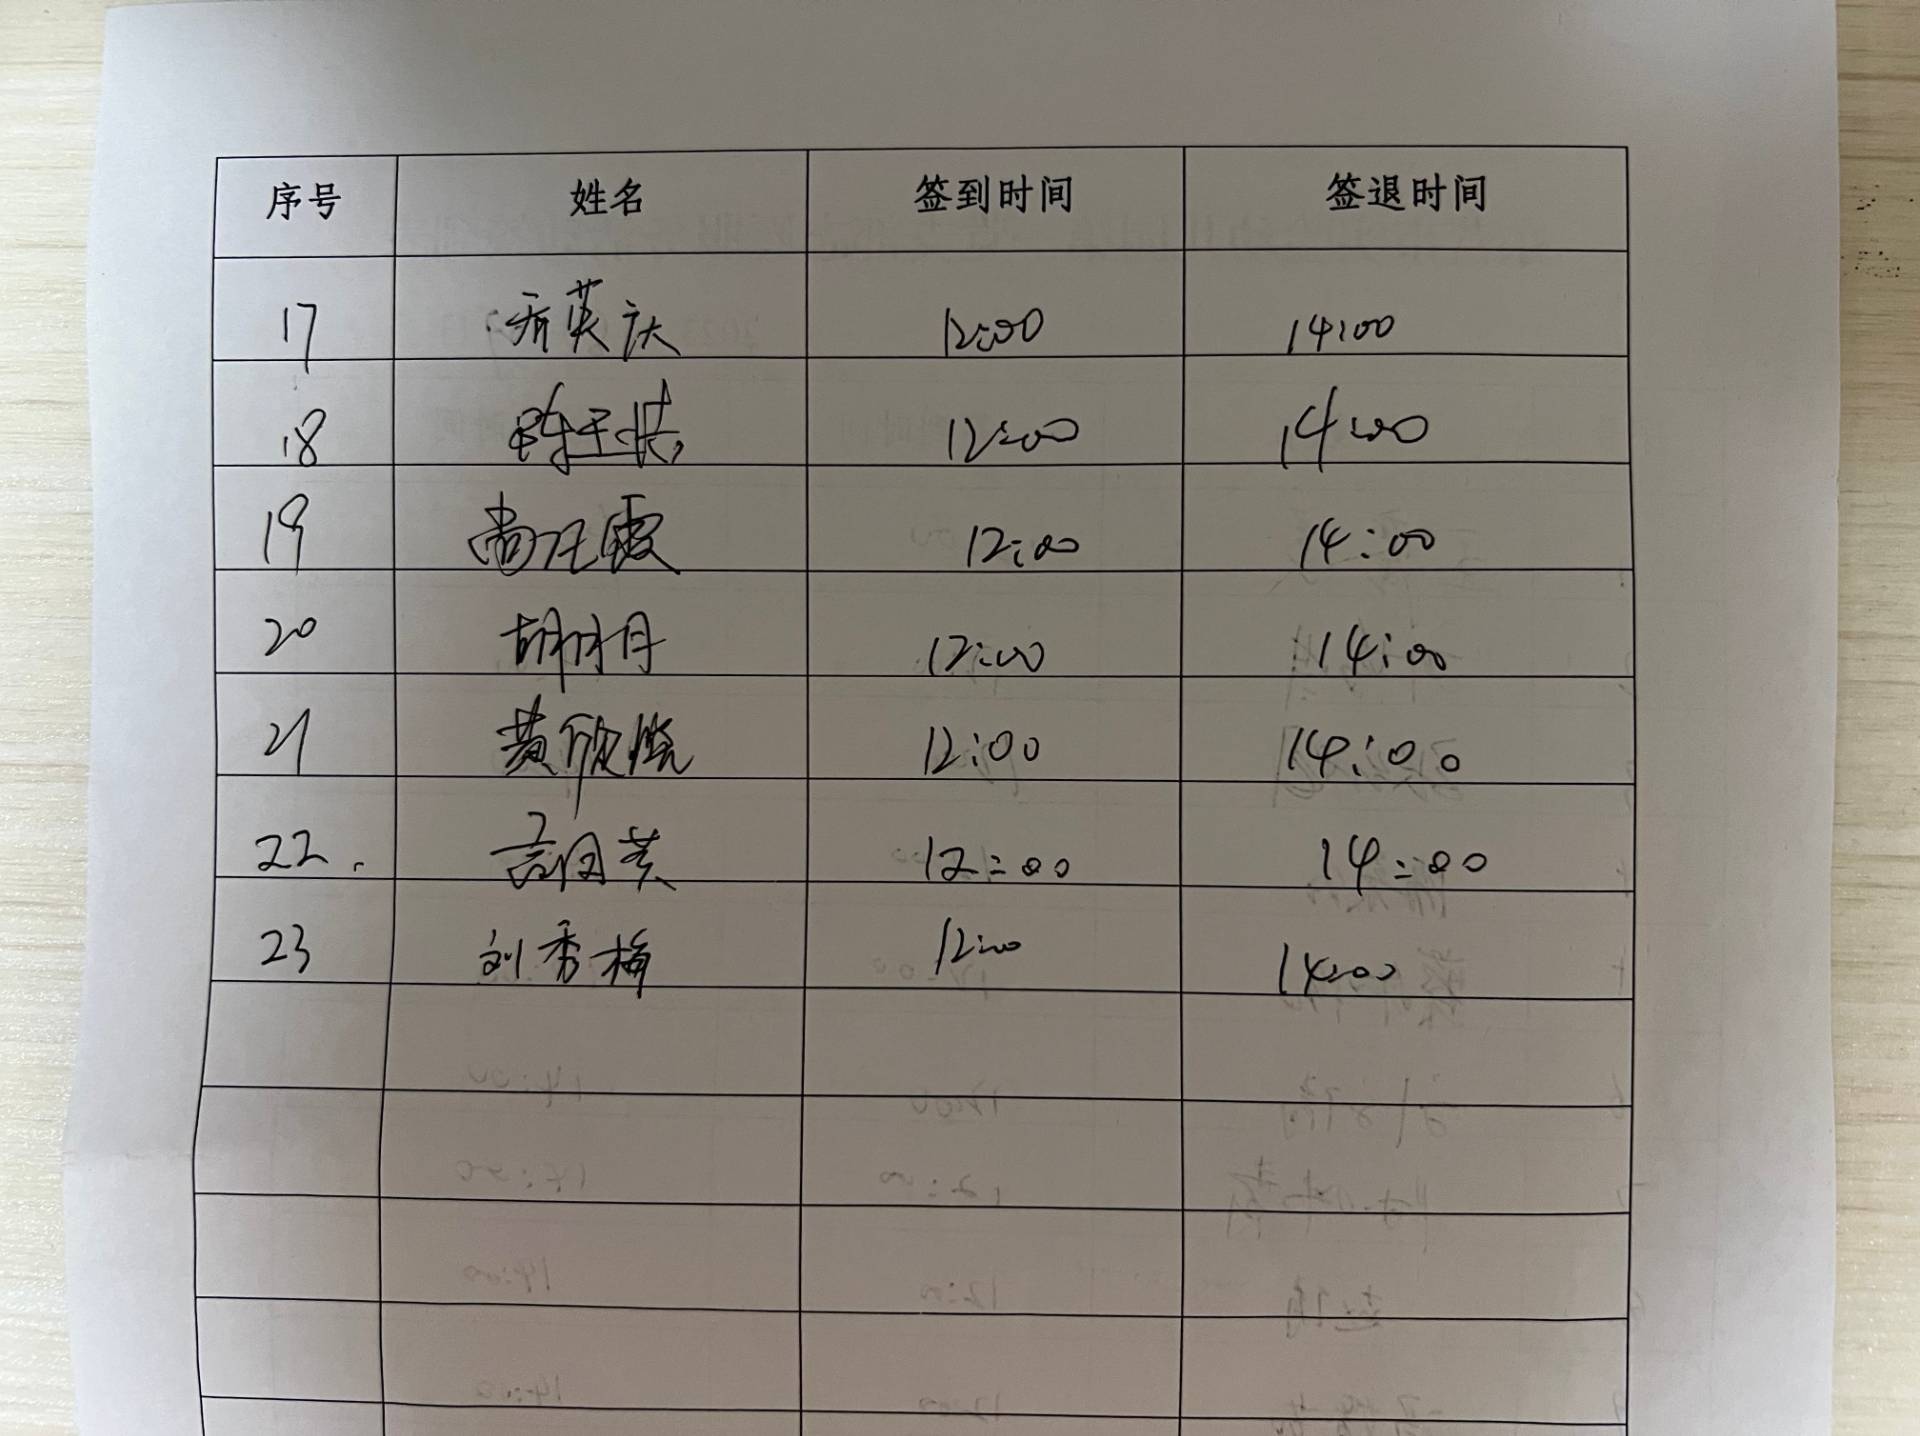 序号 姓名 签到时间 签退时间
17 英庆 12:00 14:00
18 12:00 14:00
19 尚 霞 12:00 14:00
20 胡明月 12:00 14:00
21 黄欣悦 12:00 14:00
22. 12:00 14:00
23 刘秀梅 12:00 14:00